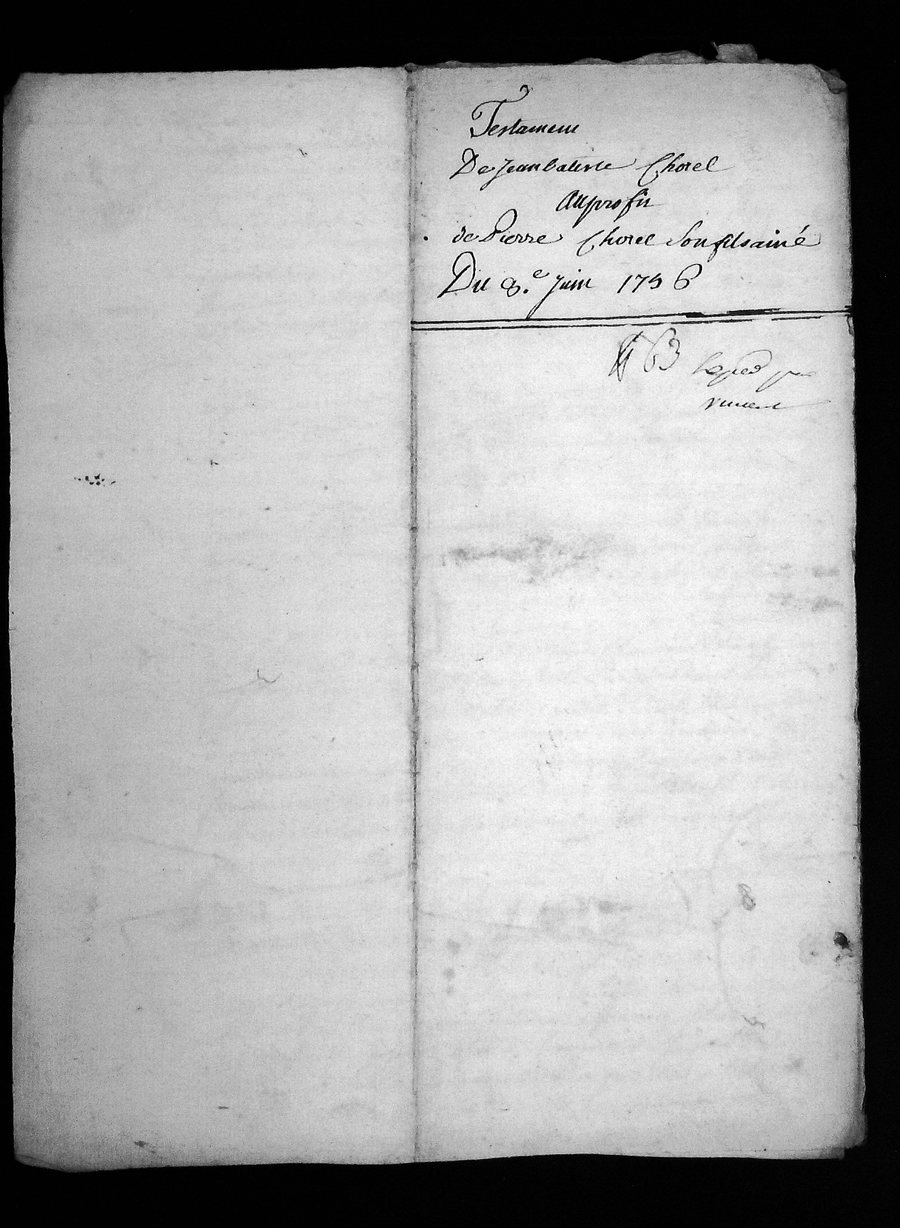 Testament
De Jean batiste Chorel
Au profit
de Pierre Chorel Son fils ainé
Du 8.e Juin 1756
63